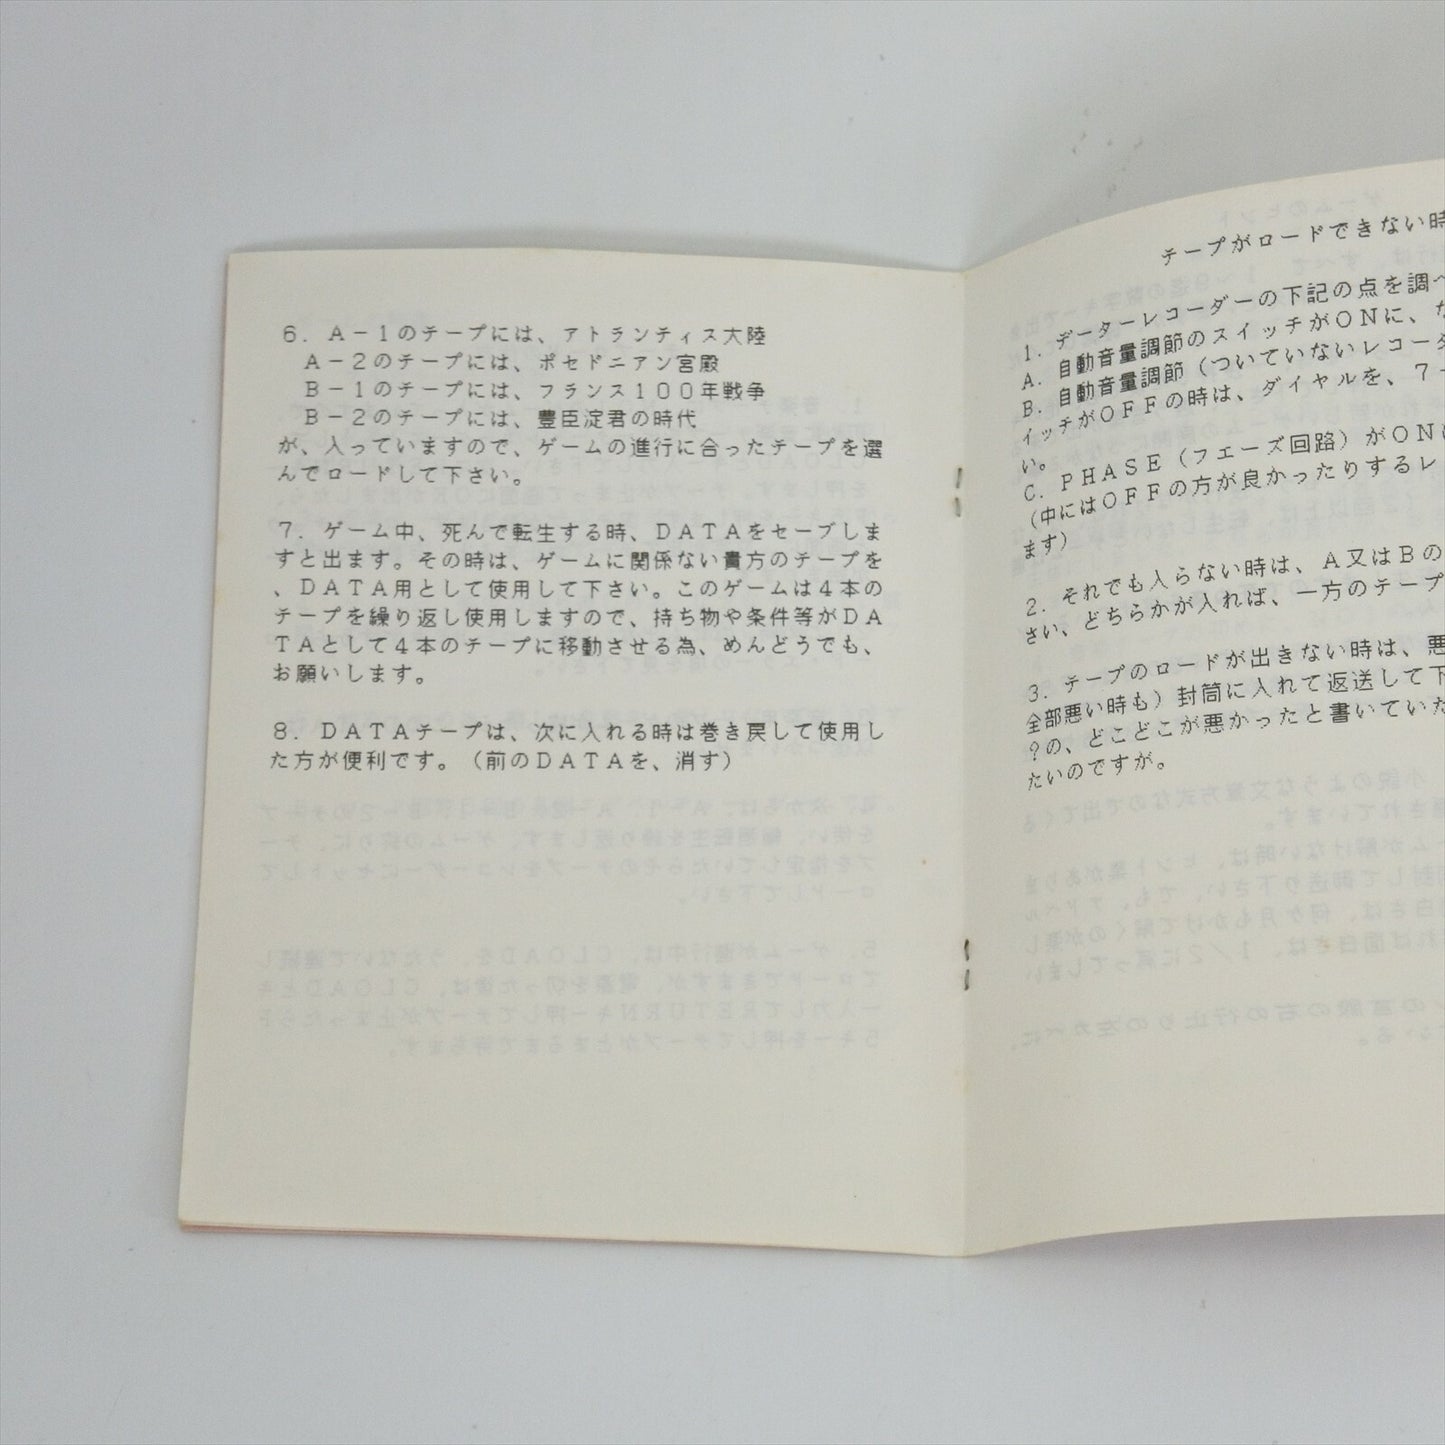 ６．Ａ－１のテープには、アトランティス大陸
Ａ－２のテープには、ポセドニアン宮殿
Ｂ－１のテープには、フランス１００年戦争
Ｂ－２のテープには、豊臣淀君の時代
が、入っていますので、ゲームの進行に合ったテープを選
んでロードして下さい。
７．ゲーム中、死んで転生する時、ＤＡＴＡをセーブしま
すと出ます。その時は、ゲームに関係ない貴方のテープを
、ＤＡＴＡ用として使用して下さい。このゲームは４本の
テープを繰り返し使用しますので、持ち物や条件等がＤＡ
ＴＡとして４本のテープに移動させる為、めんどうでも、
お願いします。
８．ＤＡＴＡテープは、次に入れる時は巻き戻して使用し
た方が便利です。（前のＤＡＴＡを、消す）
テープがロードできない時
１．データーレコーダーの下記の点を調べ
Ａ．自動音量調節のスイッチがＯＮに、な
Ｂ．自動音量調節（ついていないレコーダ
イッチがＯＦＦの時は、ダイヤルを、７－
い。
Ｃ．ＰＨＡＳＥ（フエーズ回路）がＯＮに
（中にはＯＦＦの方が良かったりするレ
ます）
２．それでも入らない時は、Ａ又はＢの
さい、どちらかが入れば、一方のテープ
３．テープのロードが出きない時は、悪
全部悪い時も）封筒に入れて返送して下
？の、どこどこが悪かったと書いていた
たいのですが。